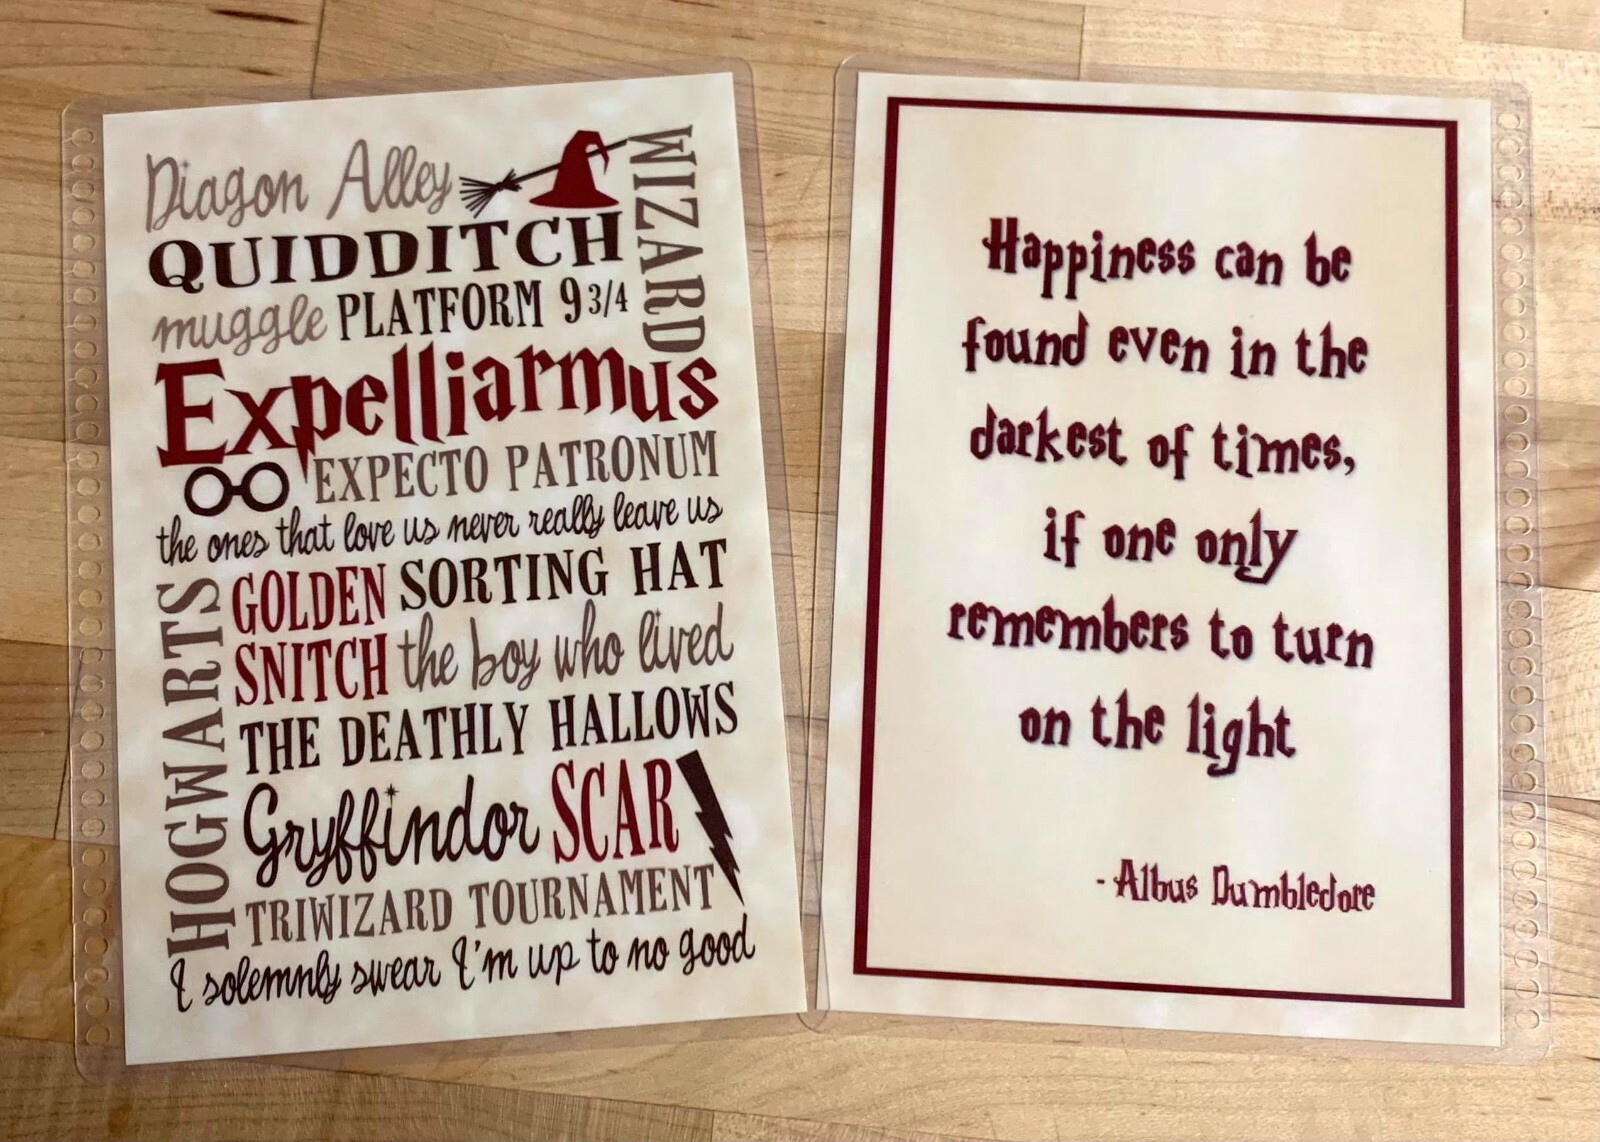 Diagon Alley
WIZARD
QUIDDITCH
muggle PLATFORM 9 3/4
Expelliarmus
EXPECTO PATRONUM
the ones that love us never really leave us
HOGWARTS
GOLDEN SORTING HAT
SNITCH the boy who lived
THE DEATHLY HALLOWS
Gryffindor SCAR
TRIWIZARD TOURNAMENT
I solemnly swear I'm up to no good
Happiness can be
found even in the
darkest of times,
if one only
remembers to turn
on the light
- Albus Dumbledore